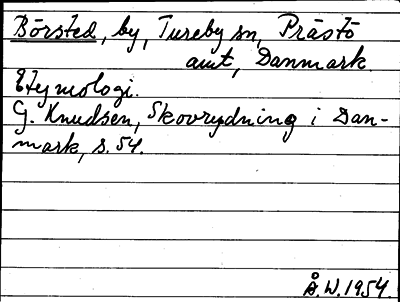 Börsted, by, Tureby sn, Prästö
amt, Danmark.
Etymologi.
G. Knudsen, Skovrydning i Dan-
mark, s. 54.
Å. W. 1954.